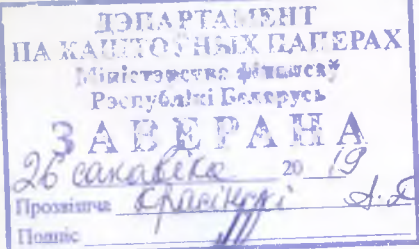 ДЭПАРТАМЕНТ
ПА КАШТОЎНЫХ ПАПЕРАХ
Міністэрства фінансаў
Рэспублікі Беларусь
ЗАВЕРАНА
26 сакавіка 20 19
Прозвішча Красінскі
Подпіс